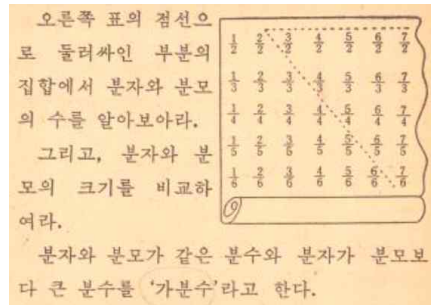 오른쪽 표의 점선으
로 둘러싸인 부분의
집합에서 분자와 분모
의 수를 알아보아라.
그리고, 분자와 분
모의 크기를 비교하
여라.
1/2 2/2 3/2 4/2 5/2 6/2 7/2
1/3 2/3 3/3 4/3 5/3 6/3 7/3
1/4 2/4 3/4 4/4 5/4 6/4 7/4
1/5 2/5 3/5 4/5 5/5 6/5 7/5
1/6 2/6 3/6 4/6 5/6 6/6 7/6
분자와 분모가 같은 분수와 분자가 분모보
다 큰 분수를 '가분수'라고 한다.